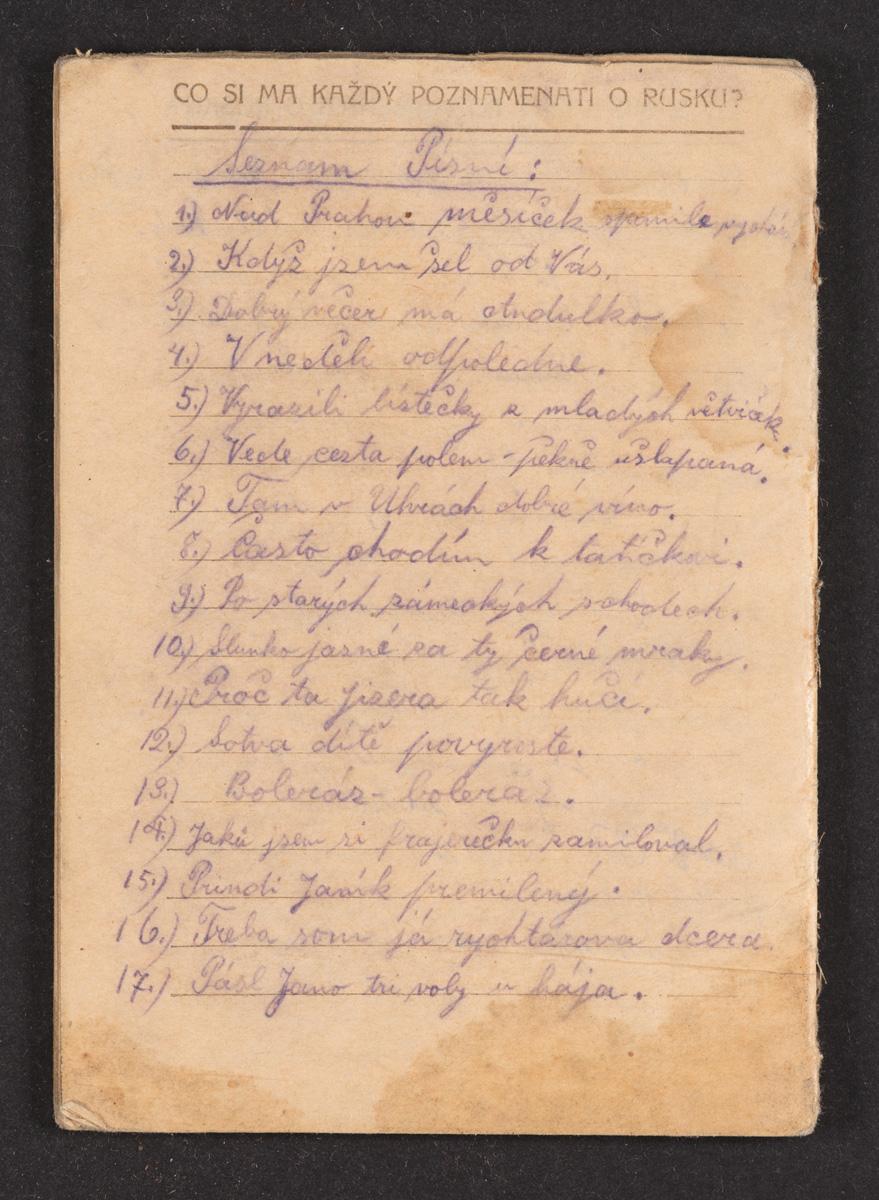 CO SI MA KAŽDÝ POZNAMENATI O RUSKU?
Seznam Písní:
1.) Nad Prahou měsíček spanile
2.) Když jsem šel od Vás.
3.) Dobrý večer má Andulko.
4.) V neděli odpoledne.
5.) Vyrazili lístečky z mladých větviček.
6.) Vede cesta polem - pěkně ušlapaná.
7.) Tam v Uhrách dobré víno.
8.) Často chodím k tatíčkovi.
9.) Po starých zámeckých schodech.
10.) Slunko jasné za ty černé mraky.
11.) Proč ta Jizera tak hučí.
12.) Sotva dítě povyroste.
13.) Boleráz - boleraz.
14.) Jakú jsem si frajerečku zamiloval.
15.) Prindi Janík premilený.
16.) Treba som já rychtarova dcera.
17.) Pásl Jano tri voly u hája.